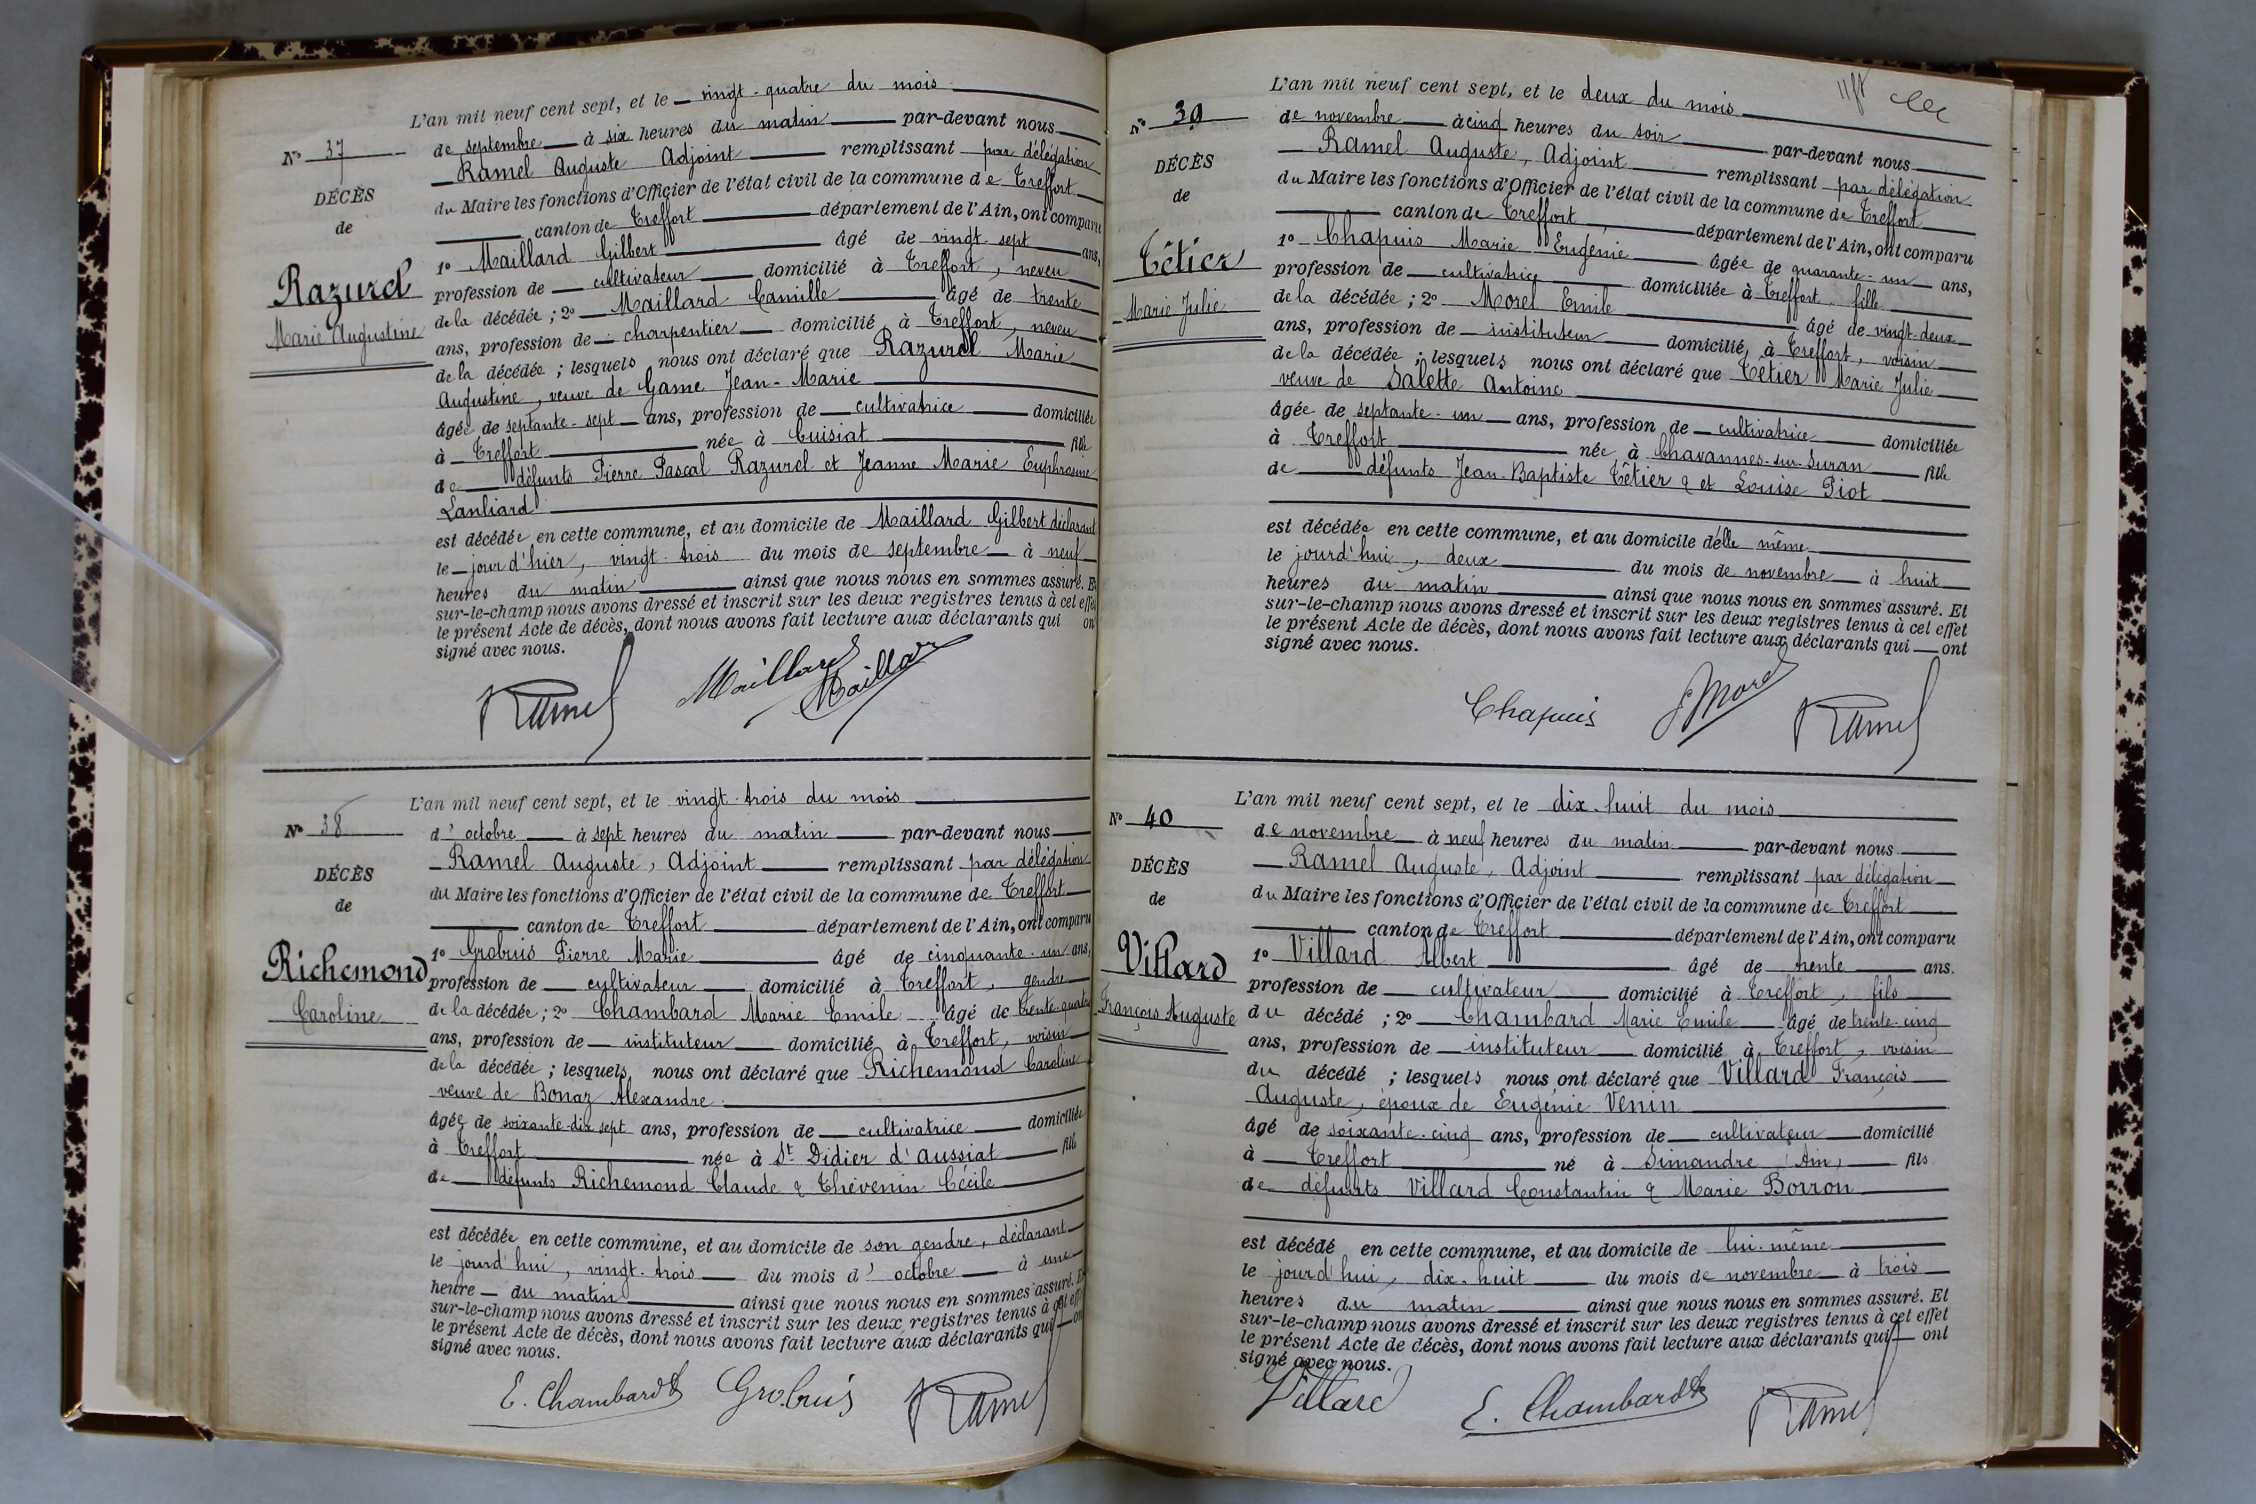 L'an mil neuf cent sept, et le vingt-quatre du mois
de septembre à six heures du matin par-devant nous
Ramel Auguste Adjoint remplissant par délégation
du Maire les fonctions d'Officier de l'état civil de la commune de Treffort
canton de Treffort département de l'Ain, ont comparu
1º Maillard Gilbert âgé de vingt-sept ans,
profession de cultivateur domicilié à Treffort, neveu
de la décédée ; 2º Maillard Camille âgé de trente
ans, profession de charpentier domicilié à Treffort, neveu
de la décédée ; lesquels nous ont déclaré que Razurel Marie
Augustine, veuve de Game Jean-Marie
âgée de septante-sept ans, profession de cultivatrice domiciliée
à Treffort née à Cuisiat fille
de défunts Pierre Pascal Razurel et Jeanne Marie Euphrosine
Lanliard
est décédée en cette commune, et au domicile de Maillard Gilbert déclarant
le jour d'hier, vingt-trois du mois de septembre à neuf
heures du matin ainsi que nous nous en sommes assuré. Et
sur-le-champ nous avons dressé et inscrit sur les deux registres tenus à cet effet
le présent Acte de décès, dont nous avons fait lecture aux déclarants qui ont
signé avec nous.
Nº 37
DÉCÈS
de
Razurel
Marie Augustine
Ramel Maillard Maillard
L'an mil neuf cent sept, et le vingt-trois du mois
d'octobre à sept heures du matin par-devant nous
Ramel Auguste, Adjoint remplissant par délégation
du Maire les fonctions d'Officier de l'état civil de la commune de Treffort
canton de Treffort département de l'Ain, ont comparu
1º Grobuis Pierre Marie âgé de cinquante-un ans,
profession de cultivateur domicilié à Treffort, gendre
de la décédée ; 2º Chambard Marie Emile âgé de trente-quatre
ans, profession de instituteur domicilié à Treffort, voisin
de la décédée ; lesquels nous ont déclaré que Richemond Caroline
veuve de Bonaz Alexandre
âgée de soixante-dix sept ans, profession de cultivatrice domiciliée
à Treffort née à St Didier d'Aussiat fille
de défunts Richemond Claude & Thévenin Cécile
est décédée en cette commune, et au domicile de son gendre, déclarant
le jourd'hui, vingt-trois du mois d'octobre à une
heure du matin ainsi que nous nous en sommes assuré. Et
sur-le-champ nous avons dressé et inscrit sur les deux registres tenus à cet effet
le présent Acte de décès, dont nous avons fait lecture aux déclarants qui ont
signé avec nous.
Nº 38
DÉCÈS
de
Richemond
Caroline
E. Chambard Grobuis Ramel
L'an mil neuf cent sept, et le deux du mois
de novembre à cinq heures du soir par-devant nous
Ramel Auguste, Adjoint remplissant par délégation
du Maire les fonctions d'Officier de l'état civil de la commune de Treffort
canton de Treffort département de l'Ain, ont comparu
1º Chapuis Marie Eugénie âgée de quarante-un ans,
profession de cultivatrice domiciliée à Treffort fille
de la décédée ; 2º Morel Emile âgé de vingt-deux
ans, profession de instituteur domicilié à Treffort, voisin
de la décédée ; lesquels nous ont déclaré que Têtier Marie Julie
veuve de Salette Antoine
âgée de septante-un ans, profession de cultivatrice domiciliée
à Treffort née à Chavannes-sur-Suran fille
de défunts Jean-Baptiste Têtier & et Louise Piot
est décédée en cette commune, et au domicile d'elle même
le jourd'hui, deux du mois de novembre à huit
heures du matin ainsi que nous nous en sommes assuré. Et
sur-le-champ nous avons dressé et inscrit sur les deux registres tenus à cet effet
le présent Acte de décès, dont nous avons fait lecture aux déclarants qui ont
signé avec nous.
Nº 39
DÉCÈS
de
Têtier
Marie Julie
Chapuis E Morel Ramel
L'an mil neuf cent sept, et le dix-huit du mois
de novembre à neuf heures du matin par-devant nous
Ramel Auguste, Adjoint remplissant par délégation
du Maire les fonctions d'Officier de l'état civil de la commune de Treffort
canton de Treffort département de l'Ain, ont comparu
1º Villard Albert âgé de trente ans.
profession de cultivateur domicilié à Treffort, fils
du décédé ; 2º Chambard Marie Emile âgé de trente-cinq
ans, profession de instituteur domicilié à Treffort, voisin
du décédé ; lesquels nous ont déclaré que Villard François
Auguste, époux de Eugénie Venin
âgé de soixante-cinq ans, profession de cultivateur domicilié
à Treffort né à Simandre (Ain) fils
de défunts Villard Constantin & Marie Borron
est décédé en cette commune, et au domicile de lui-même
le jourd'hui, dix-huit du mois de novembre à trois
heures du matin ainsi que nous nous en sommes assuré. Et
sur-le-champ nous avons dressé et inscrit sur les deux registres tenus à cet effet
le présent Acte de décès, dont nous avons fait lecture aux déclarants qui ont
signé avec nous.
Nº 40
DÉCÈS
de
Villard
François Auguste
Villard E. Chambard Ramel